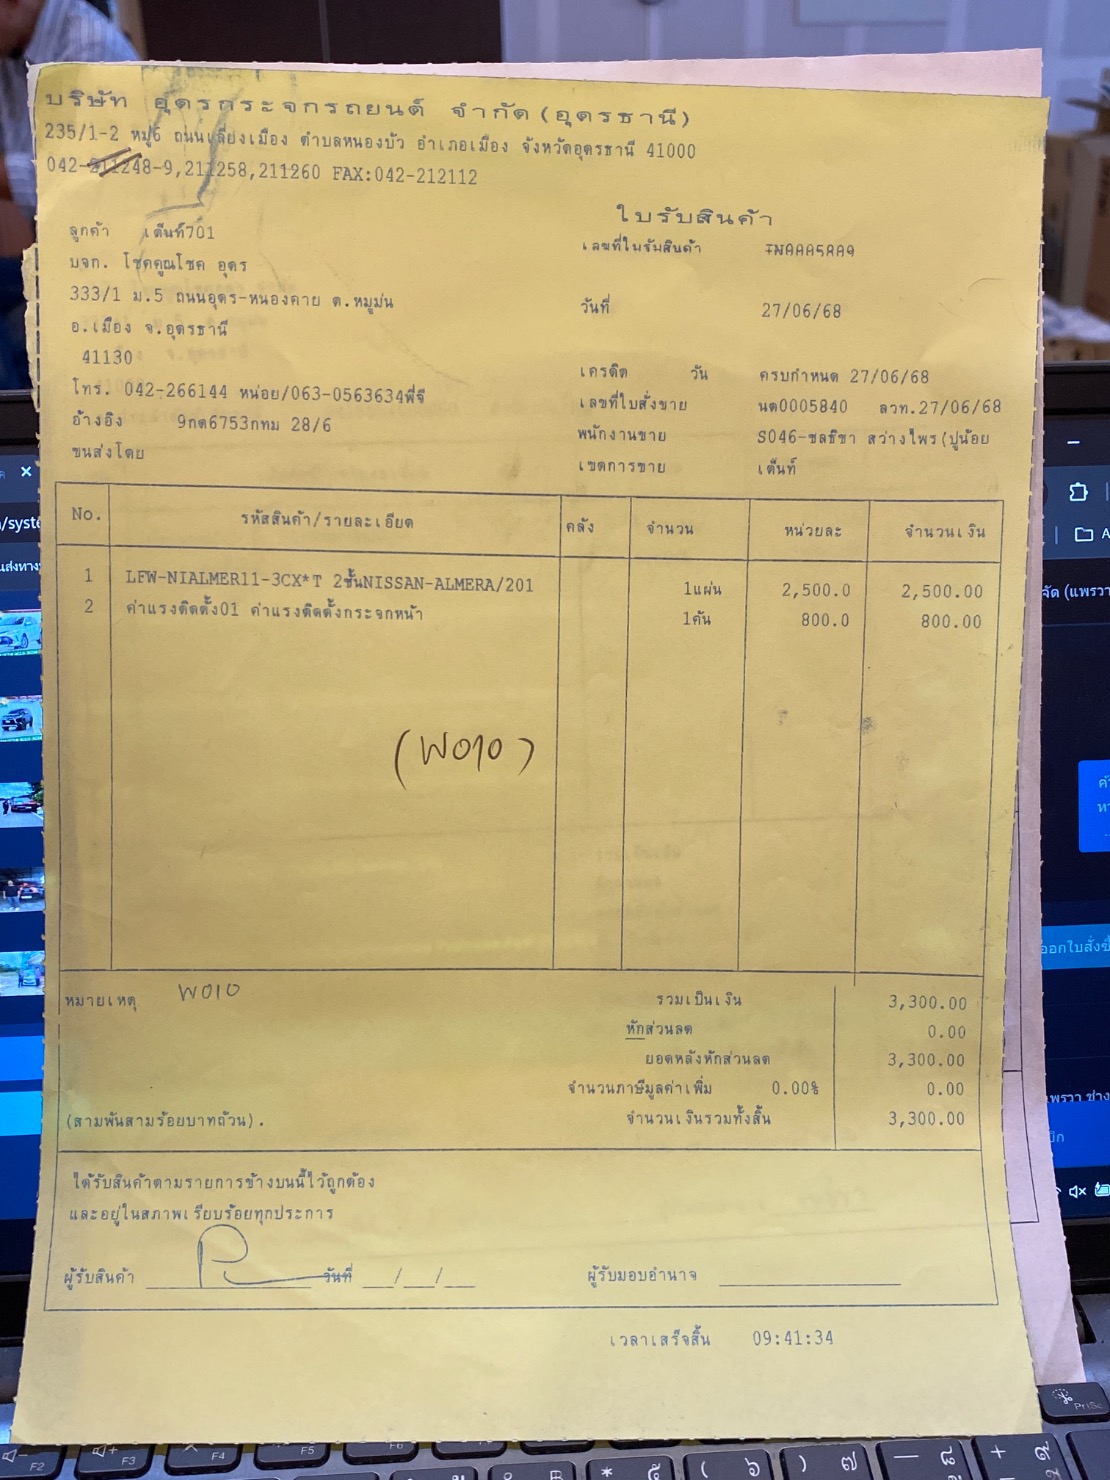 บริษัท อุดรกระจกรถยนต์ จำกัด(อุดรธานี)
235/1-2 หมู่6 ถนนเลี่ยงเมือง ตำบลหนองบัว อำเภอเมือง จังหวัดอุดรธานี 41000
042-211248-9,211258,211260 FAX:042-212112
ใบรับสินค้า
ลูกค้า เต็นท์701
เลขที่ใบรับสินค้า
บจก. โชคคูณโชค อุดร
333/1 ม.5 ถนนอุดร-หนองคาย ต.หมูม่น
วันที่ 27/06/68
อ.เมือง จ.อุดรธานี
41130
เครดิต วัน ครบกำหนด 27/06/68
โทร. 042-266144 หน่อย/063-0563634พี่จี
เลขที่ใบสั่งขาย นต0005840 ลวท.27/06/68
อ้างอิง 9กต6753กทม 28/6
พนักงานขาย S046-ชลธิชา สว่างไพร(ปูน้อย
ขนส่งโดย
เขตการขาย เต็นท์
No. รหัสสินค้า/รายละเอียด คลัง จำนวน หน่วยละ จำนวนเงิน
1 LFW-NIALMER11-3CX*T 2ชั้นNISSAN-ALMERA/201 1แผ่น 2,500.0 2,500.00
2 ค่าแรงติดตั้ง01 ค่าแรงติดตั้งกระจกหน้า 1คัน 800.0 800.00
(W010)
หมายเหตุ W010 รวมเป็นเงิน 3,300.00
หักส่วนลด 0.00
ยอดหลังหักส่วนลด 3,300.00
จำนวนภาษีมูลค่าเพิ่ม 0.00% 0.00
(สามพันสามร้อยบาทถ้วน). จำนวนเงินรวมทั้งสิ้น 3,300.00
ได้รับสินค้าตามรายการข้างบนนี้ไว้ถูกต้อง
และอยู่ในสภาพเรียบร้อยทุกประการ
ผู้รับสินค้า วันที่ __/__/__ ผู้รับมอบอำนาจ
เวลาเสร็จสิ้น 09:41:34